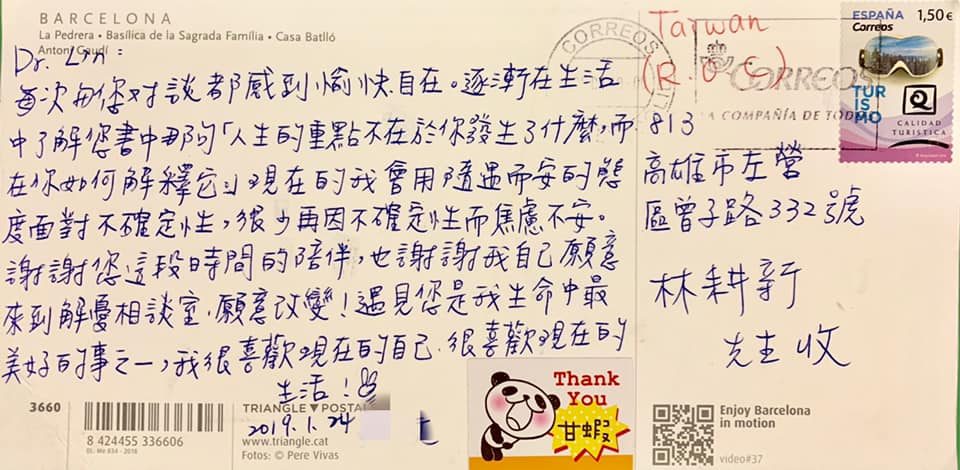 BARCELONA
La Pedrera • Basílica de la Sagrada Família • Casa Batlló
Antoni Gaudí
Dr. Lin:
每次与您对談都感到愉快自在。逐漸在生活
中了解您書中那句「人生的重點不在於你發生了什麼,而
在你如何解釋它」現在的我會用隨遇而安的態
度面對不確定性,很少再因不確定性而焦慮不安。
謝謝您這段時間的陪伴,也謝謝我自己願意
來到解憂相談室,願意改變!遇見您是我生命中最
美好的事之一,我很喜歡現在的自己.很喜歡現在的
生活!
2019.1.24
3660
8 424455 336606
DL: Me 634 - 2016
TRIANGLE ▼ POSTAL
www.triangle.cat
Fotos: © Pere Vivas
Thank
You
甘蝦
Taiwan
(R.O.C)
CORREOS
CORREOS
LA COMPAÑÍA DE TODOS
ESPAÑA 1,50€
Correos
TUR
IS
MO
Q
CALIDAD
TURÍSTICA
813
高雄市左營
區曾子路332號
林耕新
先生 收
Enjoy Barcelona
in motion
video#37